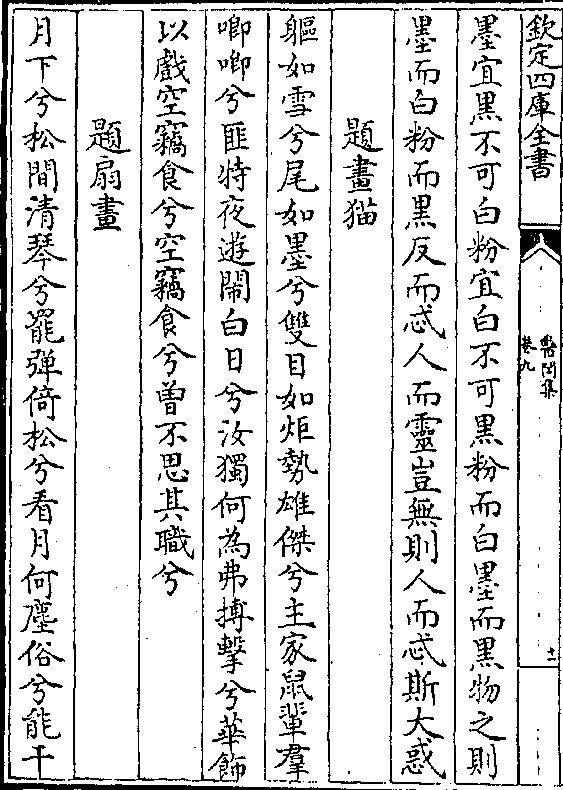 欽定四庫全書
卷九
十一
墨宜黑不可白粉宜白不可黑粉而白墨而黑物之則
墨而白粉而黑反而忒人而靈豈無則人而忒斯大惑
題畫猫
軀如雪兮尾如墨兮雙目如炬勢雄傑兮主家鼠輩羣
唧唧兮匪特夜遊鬧白日兮汝獨何為弗搏擊兮華飾
以戲空竊食兮空竊食兮曽不思其職兮
題扇畫
月下兮松間清琴兮罷弹倚松兮看月何塵俗兮能干